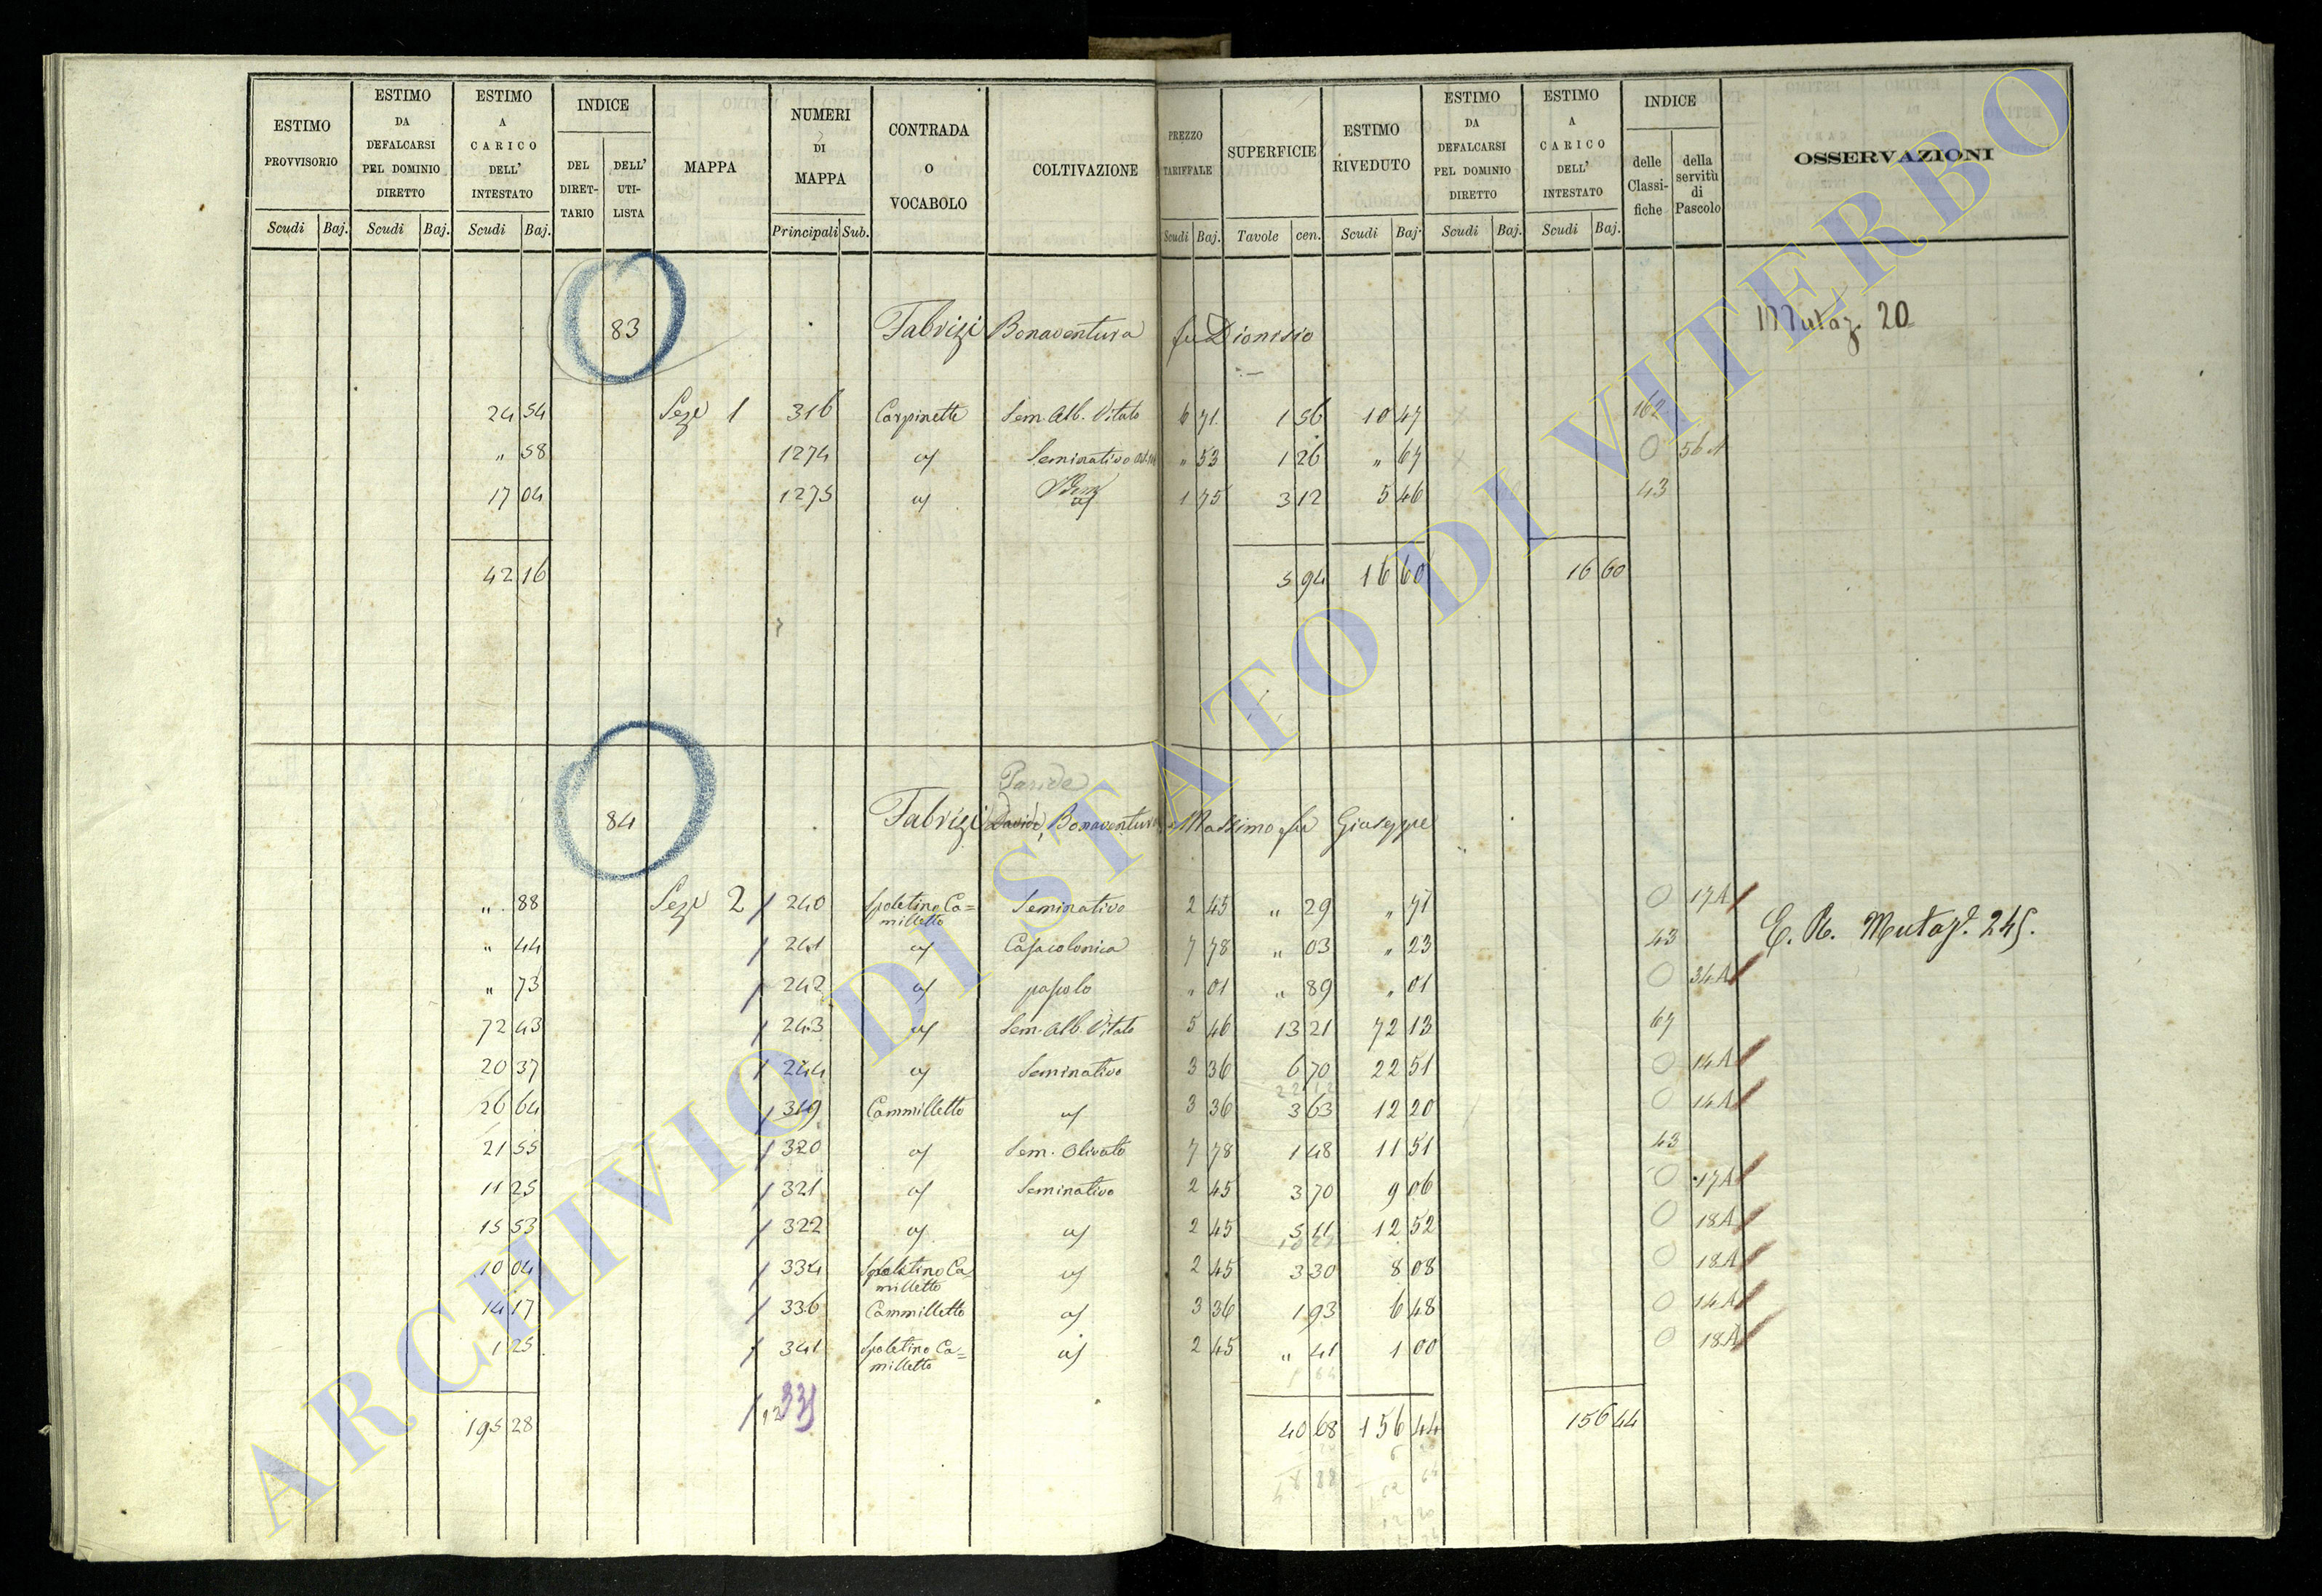 ESTIMO PROVVISORIO
Scudi Baj.
ESTIMO DA DEFALCARSI PEL DOMINIO DIRETTO
Scudi Baj.
ESTIMO A CARICO DELL' INTESTATO
Scudi Baj.
INDICE
DEL DIRET-TARIO
DELL' UTI-LISTA
MAPPA
NUMERI DI MAPPA
Principali Sub.
CONTRADA O VOCABOLO
COLTIVAZIONE
PREZZO TARIFFALE
Scudi Baj.
SUPERFICIE
Tavole cen.
ESTIMO RIVEDUTO
Scudi Baj.
ESTIMO DA DEFALCARSI PEL DOMINIO DIRETTO
Scudi Baj.
ESTIMO A CARICO DELL' INTESTATO
Scudi Baj.
INDICE
delle Classi-fiche
della servitù di Pascolo
OSSERVAZIONI
83 Fabrizi Bonaventura fu Dionisio Mutaz. 20
24 54 Seze 1 316 Carpinette Sem. Alb. Vitato 6 71 1 56 10 47 162
" 58 1274 Seminativo " 53 1 26 " 67 0 56 A
17 04 1275 1 75 3 12 5 46 43
42 16 5 94 16 60 16 60
Paride
84 Fabrizi Davide, Bonaventura Massimo fu Giuseppe
" 88 Seze 2 240 Spoletino Ca=milletto Seminativo 2 45 " 29 " 71 0 17A
" 44 241 Casa colonica 7 78 " 03 " 23 43
E. R. Mutaz. 245.
" 73 242 pascolo " 01 " 89 " 01 0 34A
72 43 243 Sem. Alb. Vitato 5 46 13 21 72 13 67
20 37 244 Seminativo 3 36 6 70 22 51 0 14A
26 64 319 Cammilletto 3 36 3 63 12 20 0 14A
21 55 320 Sem. Olivato 7 78 1 48 11 51 43
11 25 321 Seminativo 2 45 3 70 9 06 0 17A
15 53 322 2 45 5 11 12 52 0 18A
10 04 334 Spoletino Ca milletto 2 45 3 30 8 08 0 18A
14 17 336 Cammilletto 3 36 1 93 6 48 0 14A
1 25 341 Spoletino Ca=milletto 2 45 " 41 1 00 0 18A
195 28 40 68 156 44 156 44
ARCHIVIO DI STATO DI VITERBO